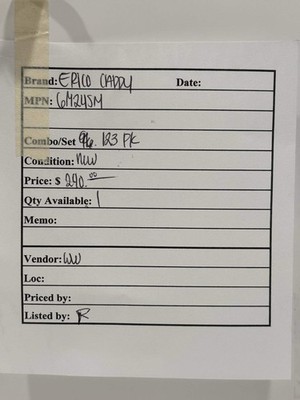 Brand: ERICO CADDY Date:
MPN: 6M24SM
Combo/Set 96. 123 PK
Condition: New
Price: $ 290.00
Qty Available: 1
Memo:
Vendor: WW
Loc:
Priced by:
Listed by: R